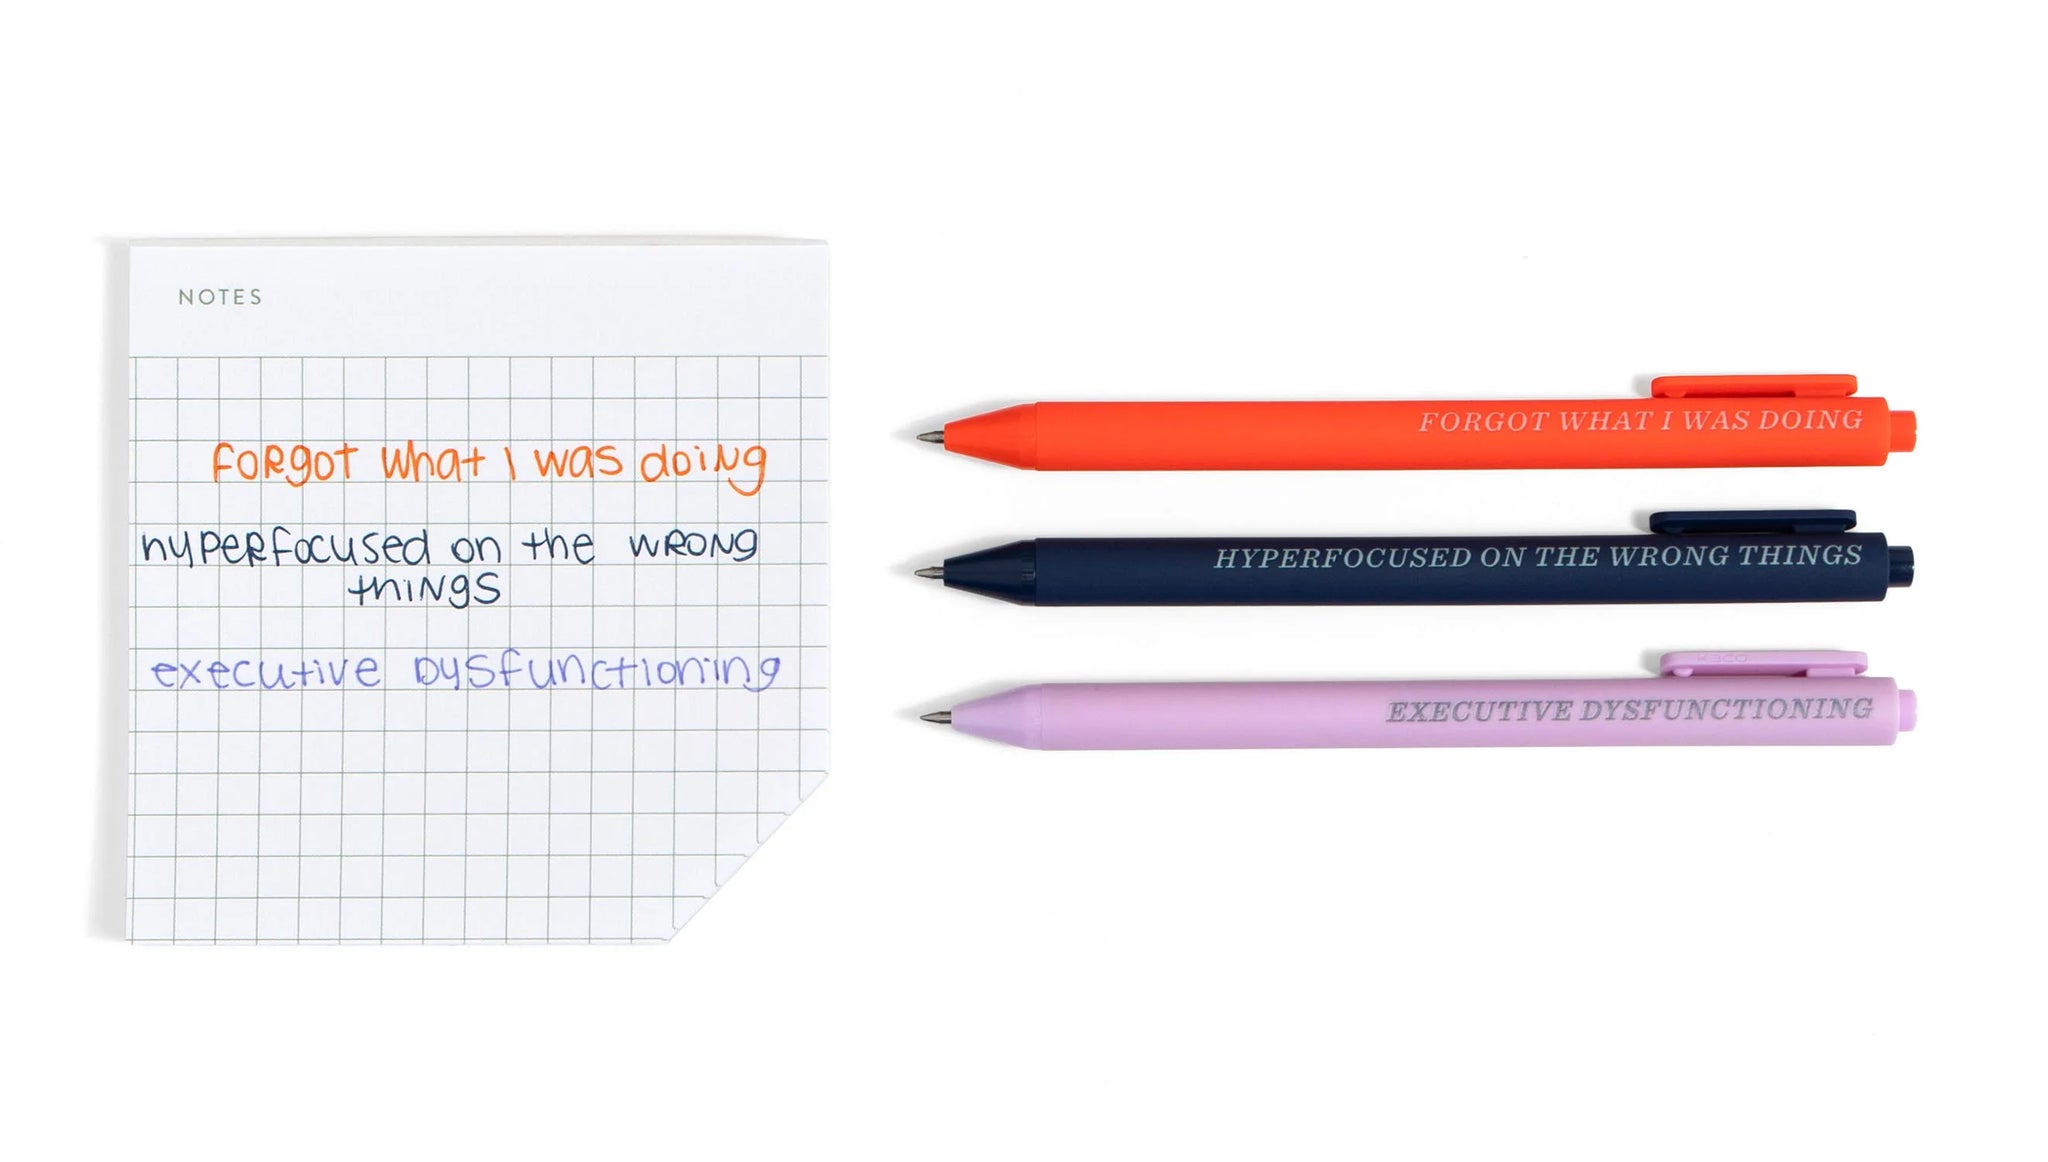 NOTES
FORgOT what I was doing
hyPERfocused on the WRONG
thiNgS
executive DySfunctioning
FORGOT WHAT I WAS DOING
HYPERFOCUSED ON THE WRONG THINGS
EXECUTIVE DYSFUNCTIONING